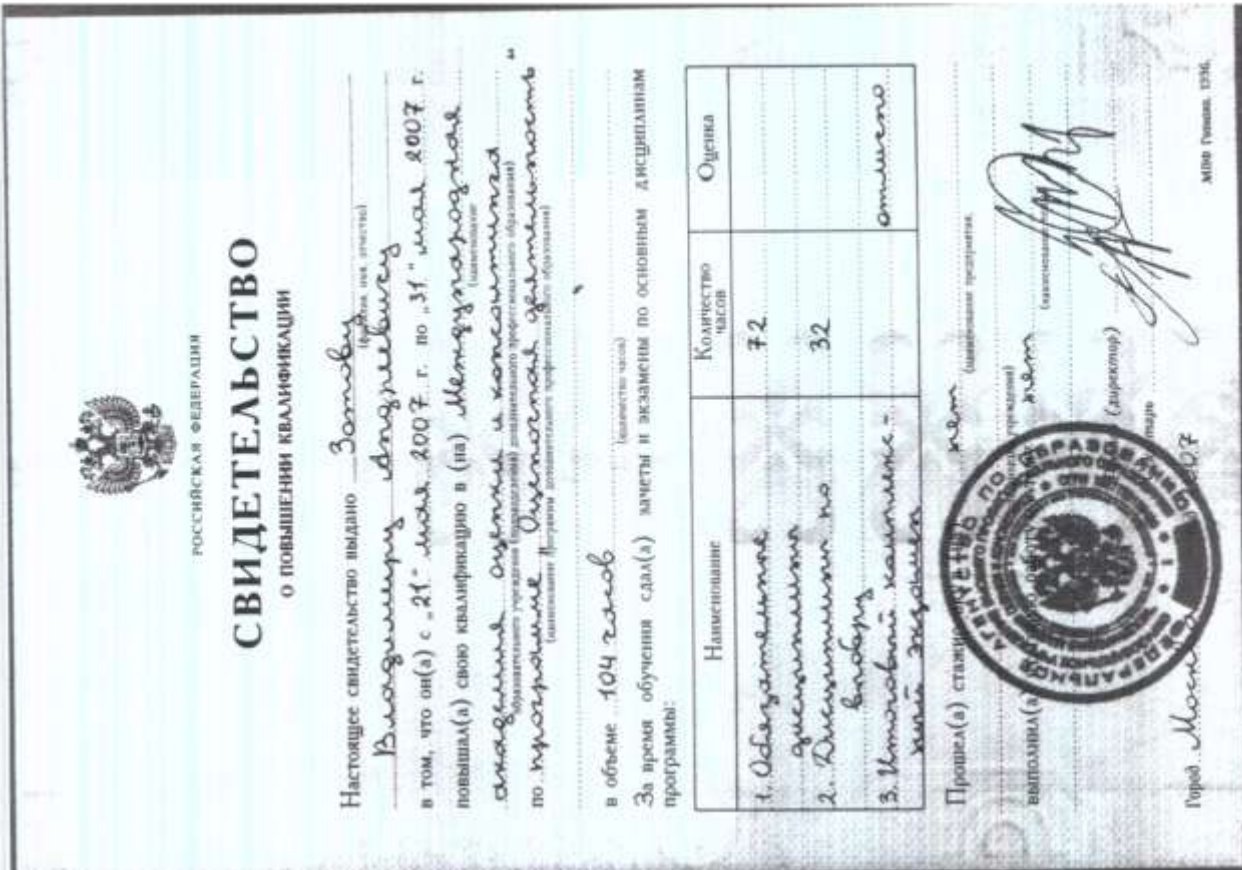 РОССИЙСКАЯ ФЕДЕРАЦИЯ
СВИДЕТЕЛЬСТВО
О ПОВЫШЕНИИ КВАЛИФИКАЦИИ
Настоящее свидетельство выдано Зотову
(фамилия, имя, отчество)
Владимиру Андреевичу
в том, что он(а) с „21“ мая 2007 г. по „31“ мая 2007 г.
повышал(а) свою квалификацию в (на) Международной
(наименование
академии оценки и консалтинга
образовательного учреждения (подразделения) дополнительного профессионального образования)
по программе „Оценочная деятельность“
(наименование программы дополнительного профессионального образования)
в объеме 104 часов
(количество часов)
За время обучения сдал(а) зачеты и экзамены по основным дисциплинам
программы:
Наименование Количество часов Оценка
1. Обязательные
дисциплины 72
2. Дисциплины по
выбору 32
3. Итоговый комплекс-
ный экзамен отлично
Прошел(а) стажи нет
(наименование предприятия,
учреждения)
выполнил(а) нет
(наименование
(директор)
Город Москва 2007
МПФ Гознака. 1996.
ФЕДЕРАЛЬНОЕ АГЕНТСТВО ПО ОБРАЗОВАНИЮ